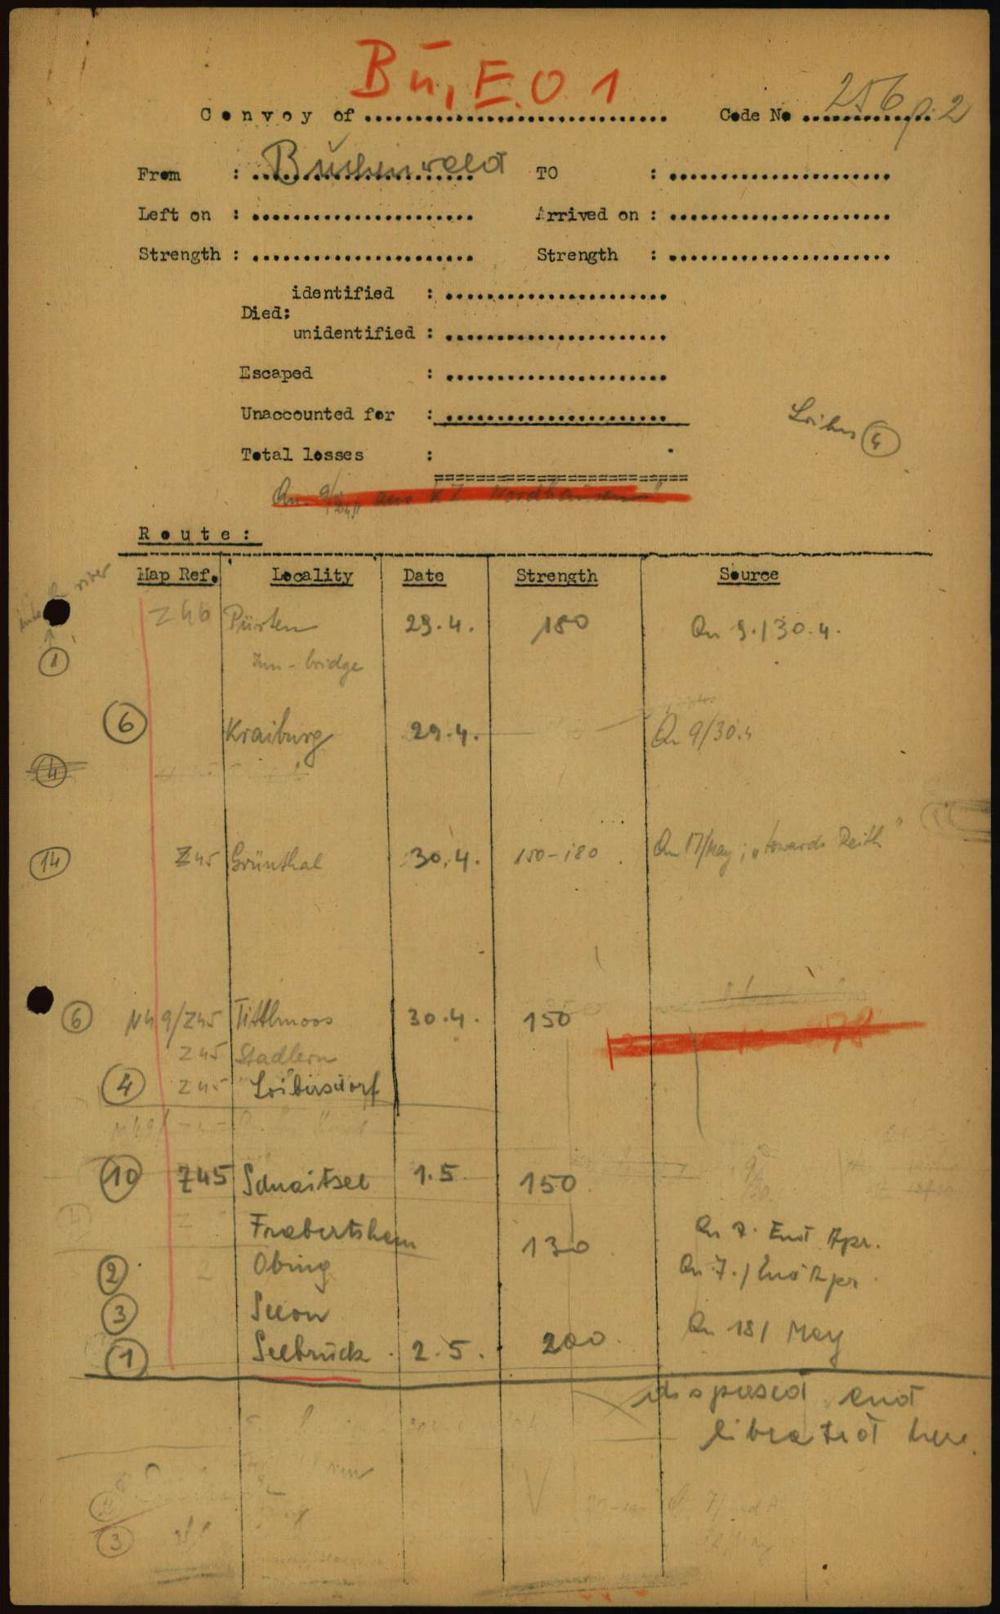 Bu, E. O 1
Convoy of .............................. Code No 256 p. 2
From : Buchenwald TO : .....................
Left on : ..................... Arrived on : .....................
Strength : ..................... Strength : .....................
identified : .....................
Died:
unidentified : .....................
Escaped : .....................
Unaccounted for : .....................
Total losses : .
Route:
Map Ref. Locality Date Strength Source
Z46 Pürten 29.4. 180 Qu 9./30.4.
1 Inn-bridge
6 Kraiburg 29.4. Qu 9/30.4
4
14 Z45 Grünthal 30.4. 150-180. Qu 17/May; "towards Reith"
6 N49/Z45 Tittlmoos 30.4. 150
Z45 Stadlern
4 Z45 Loibersdorf
10 Z45 Schnaitsee 1.5. 150
Frabertsham 130 Qu 7. End Apr.
2 Obing Qu 7./End Apr
3 Seeon
1 Seebruck 2.5. 200 Qu 18/ May
dispersed and
liberated here.
3